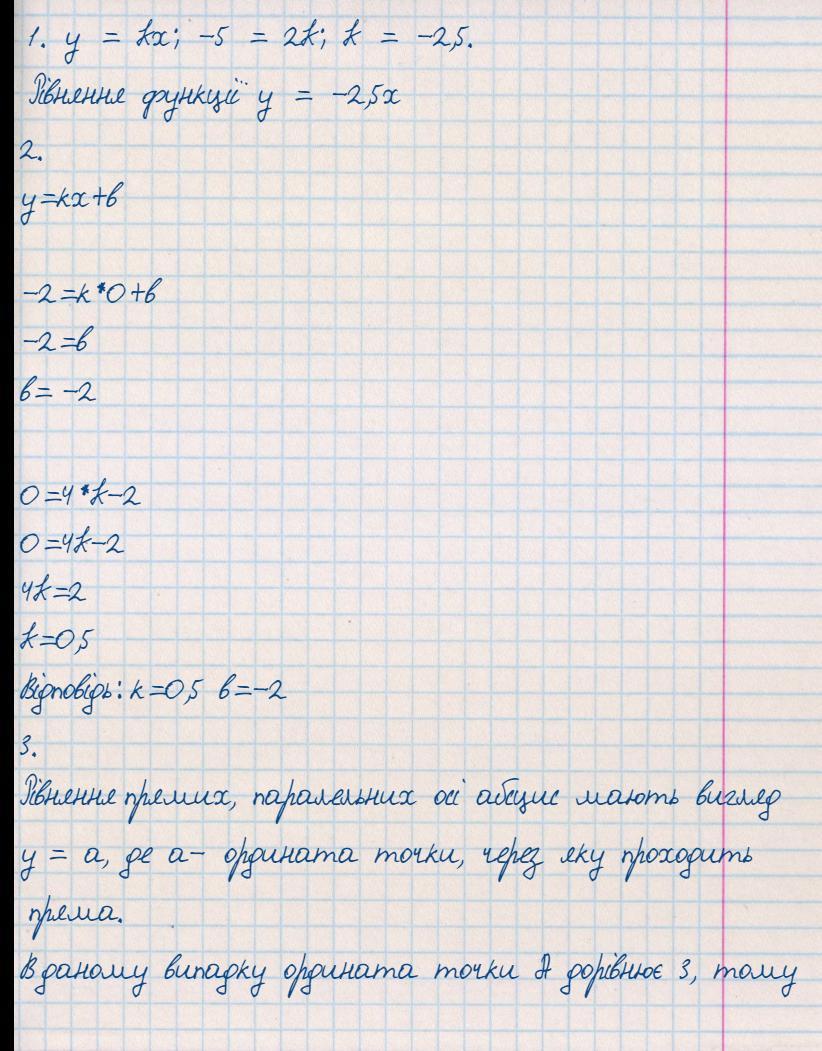 1. y = kx; -5 = 2k; k = -2,5.
Рівняння функції y = -2,5x
2.
y=kx+b
-2=k*0+b
-2=b
b= -2
0=4*k-2
0=4k-2
4k=2
k=0,5
Відповідь: k=0,5 b=-2
3.
Рівняння прямих, паралельних осі абсцис мають вигляд
y = a, де a- ордината точки, через яку проходить
пряма.
В даному випадку ордината точки А дорівнює 3, тому